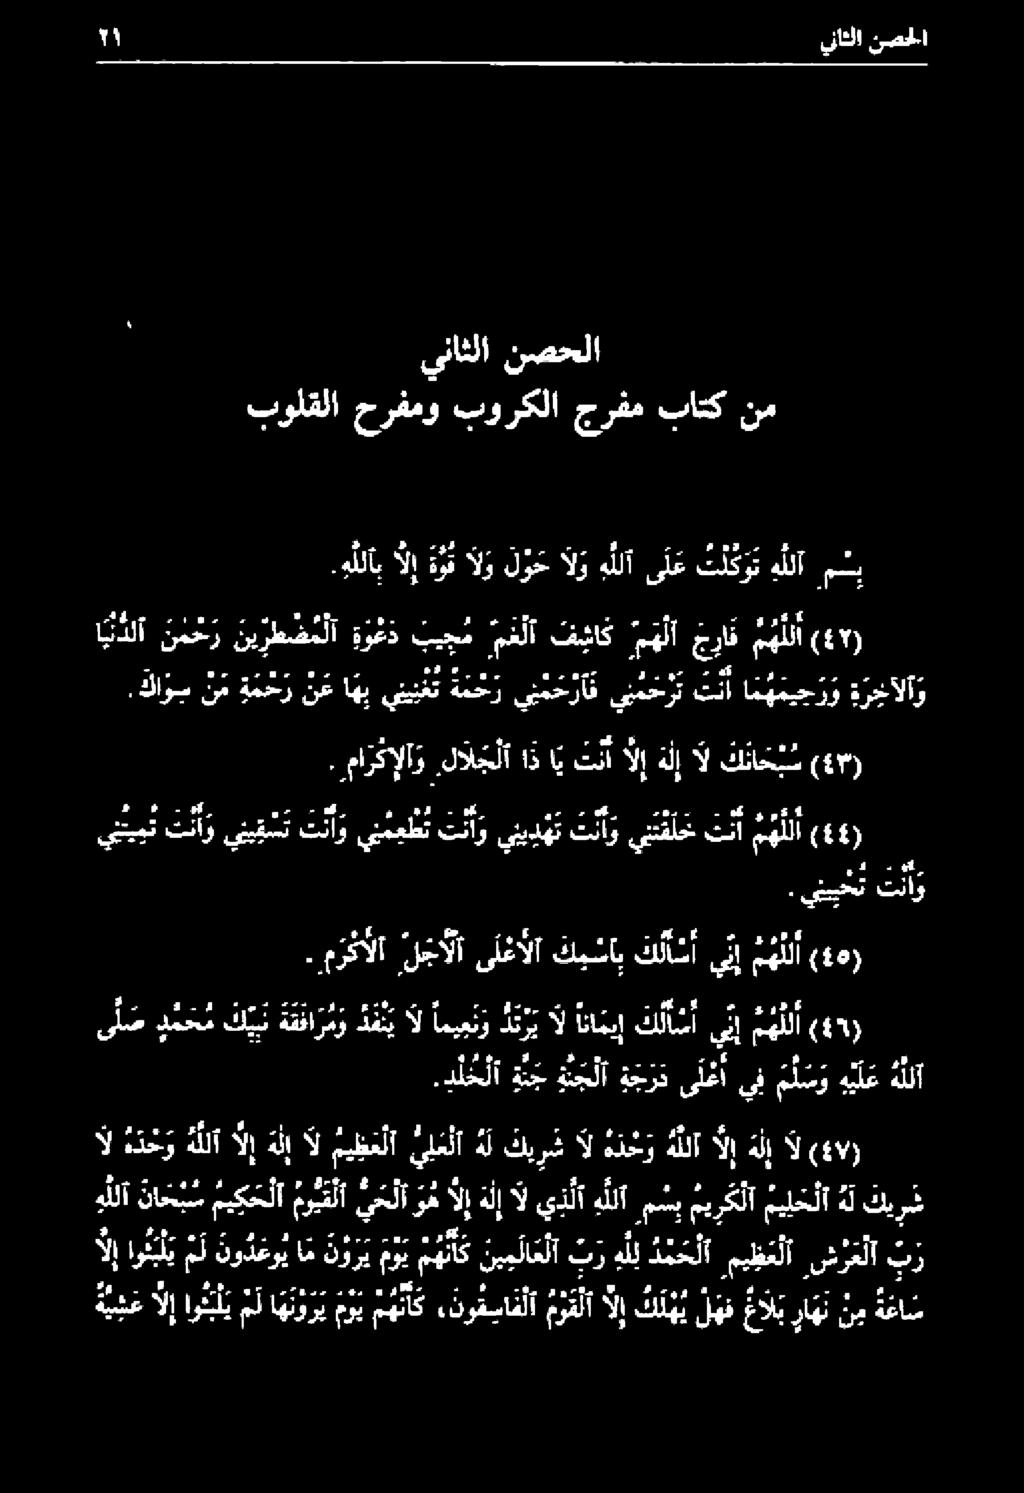 الحصن الثاني ٢١
الحصن الثاني
من كتاب مفرج الكروب ومفرح القلوب
بِسْمِ ٱللَّهِ تَوَكَّلْتُ عَلَى ٱللَّهِ وَلاَ حَوْلَ وَلاَ قُوَّةَ إِلاَّ بِٱللَّهِ.
(٤٢) أَللَّهُمَّ فَارِجَ ٱلْهَمِّ كَاشِفَ ٱلْغَمِّ مُجِيبَ دَعْوَةِ ٱلْمُضْطَرِّينَ رَحْمَنَ ٱلدُّنْيَا
وَٱلآخِرَةِ وَرَحِيمَهُمَا أَنْتَ تَرْحَمُنِي فَٱرْحَمْنِي رَحْمَةً تُغْنِينِي بِهَا عَنْ رَحْمَةِ مَنْ سِوَاكَ.
(٤٣) سُبْحَانَكَ لاَ إِلَهَ إِلاَّ أَنْتَ يَا ذَا ٱلْجَلاَلِ وَٱلإِكْرَامِ.
(٤٤) أَللَّهُمَّ أَنْتَ خَلَقْتَنِي وَأَنْتَ تَهْدِينِي وَأَنْتَ تُطْعِمُنِي وَأَنْتَ تَسْقِينِي وَأَنْتَ تُمِيتُنِي
وَأَنْتَ تُحْيِينِي.
(٤٥) أَللَّهُمَّ إِنِّي أَسْأَلُكَ بِٱسْمِكَ ٱلأَعْلَى ٱلأَجَلِّ ٱلأَكْرَمِ.
(٤٦) أَللَّهُمَّ إِنِّي أَسْأَلُكَ إِيمَاناً لاَ يَرْتَدُّ وَنَعِيماً لاَ يَنْفَدُ وَمُرَافَقَةَ نَبِيِّكَ مُحَمَّدٍ صَلَّى
ٱللَّهُ عَلَيْهِ وَسَلَّمَ فِي أَعْلَى دَرَجَةِ ٱلْجَنَّةِ جَنَّةِ ٱلْخُلْدِ.
(٤٧) لاَ إِلَهَ إِلاَّ ٱللَّهُ وَحْدَهُ لاَ شَرِيكَ لَهُ ٱلْعَلِيُّ ٱلْعَظِيمُ لاَ إِلَهَ إِلاَّ ٱللَّهُ وَحْدَهُ لاَ
شَرِيكَ لَهُ ٱلْحَلِيمُ ٱلْكَرِيمُ بِسْمِ ٱللَّهِ ٱلَّذِي لاَ إِلَهَ إِلاَّ هُوَ ٱلْحَيُّ ٱلْقَيُّومُ ٱلْحَكِيمُ سُبْحَانَ ٱللَّهِ
رَبِّ ٱلْعَرْشِ ٱلْعَظِيمِ ٱلْحَمْدُ لِلَّهِ رَبِّ ٱلْعَالَمِينَ كَأَنَّهُمْ يَوْمَ يَرَوْنَ مَا يُوعَدُونَ لَمْ يَلْبَثُوا إِلاَّ
سَاعَةً مِنْ نَهَارٍ بَلاَغٌ فَهَلْ يُهْلَكُ إِلاَّ ٱلْقَوْمُ ٱلْفَاسِقُونَ، كَأَنَّهُمْ يَوْمَ يَرَوْنَهَا لَمْ يَلْبَثُوا إِلاَّ عَشِيَّةً